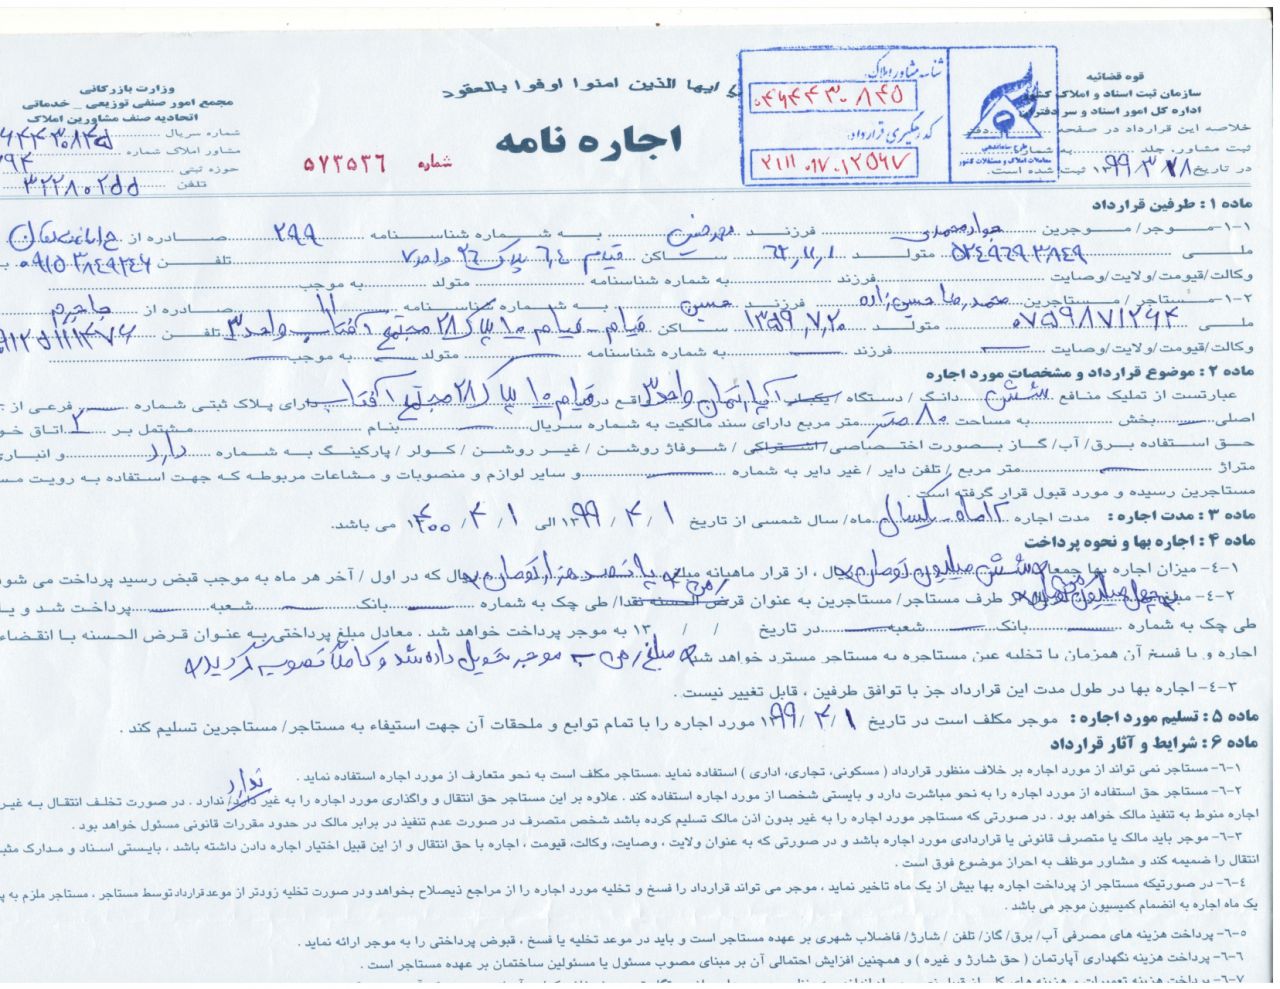 یا ایها الذین امنوا اوفوا بالعقود
اجاره نامه
شماره ۵۷۳۵۳۶
وزارت بازرگانی
مجمع امور صنفی توزیعی _ خدماتی
اتحادیه صنف مشاورین املاک
شماره سریال
مشاور املاک شماره
حوزه ثبتی
تلفن ۳۲۲۸۰۲۵۵
شناسه مشاور املاک:
کد رهگیری قرارداد:
معاملات املاک و مستغلات کشور
قوه قضائیه
سازمان ثبت اسناد و املاک کشور
اداره کل امور اسناد و سردفتران
خلاصه این قرارداد در صفحه دفتر
ثبت مشاور. جلد به شماره
در تاریخ ۱۳۹۹/۳/ ثبت شده است.
ماده ۱ : طرفین قرارداد
۱-۱- موجر/ موجرین جواد محمدی فرزند به شماره شناسنامه ۲۹۹ صادره از
ملی متولد ساکن قیام پلاک ۲۶ واحد ۷ تلفن
وکالت/قیومت/ولایت/وصایت فرزند به شماره شناسنامه متولد به موجب
۱-۲- مستاجر / مستاجرین محمدرضا حسین زاده فرزند حسین به شماره شناسنامه ۱۱ صادره از جاجرم
ملی متولد ۱۳۵۹,۷,۲۰ ساکن قیام - قیام ۱۰ پلاک ۲۸ مجتمع آفتاب واحد ۳ تلفن
وکالت/قیومت/ولایت/وصایت فرزند به شماره شناسنامه متولد به موجب
ماده ۲ : موضوع قرارداد و مشخصات مورد اجاره
عبارتست از تملیک منافع شش دانگ / دستگاه یکباب آپارتمان واحد ۳ واقع در قیام ۱۰ پلاک ۲۸ مجتمع آفتاب دارای پلاک ثبتی شماره فرعی از
اصلی بخش به مساحت ۸۰ متر متر مربع دارای سند مالکیت به شماره سریال بنام مشتمل بر ۲ اتاق
حق استفاده برق/ آب/ گاز بصورت اختصاصی/ اشتراکی / شوفاژ روشن / غیر روشن / کولر / پارکینگ به شماره دارد و انباری
متراژ متر مربع / تلفن دایر / غیر دایر به شماره و سایر لوازم و منصوبات و مشاعات مربوطه که جهت استفاده به رویت
مستاجرین رسیده و مورد قبول قرار گرفته است .
ماده ۳ : مدت اجاره : مدت اجاره ۱۲ ماه - یکسال ماه/ سال شمسی از تاریخ ۱۳۹۹/۴/۱ الی ۱۴۰۰/۴/۱ می باشد.
ماده ۴ : اجاره بها و نحوه پرداخت
۴-۱- میزان اجاره بها جمعا شش میلیون تومان ریال ، از قرار ماهیانه مبلغ پانصد هزار تومان ریال که در اول / آخر هر ماه به موجب قبض رسید پرداخت می شود
۴-۲- مبلغ چهل میلیون تومان از طرف مستاجر/ مستاجرین به عنوان رهن قرض الحسنه نقدا/ طی چک به شماره بانک شعبه پرداخت شد و یا
طی چک به شماره بانک شعبه در تاریخ / / ۱۳ به موجر پرداخت خواهد شد . معادل مبلغ پرداختی به عنوان قرض الحسنه با انقضاء
اجاره و یا فسخ آن همزمان با تخلیه عین مستاجره به مستاجر مسترد خواهد شد. مبلغ رهن به موجر تحویل داده شد و کاملا تصویه گردید
۴-۳- اجاره بها در طول مدت این قرارداد جز با توافق طرفین ، قابل تغییر نیست .
ماده ۵ : تسلیم مورد اجاره : موجر مکلف است در تاریخ ۱۳۹۹/۴/۱ مورد اجاره را با تمام توابع و ملحقات آن جهت استیفاء به مستاجر/ مستاجرین تسلیم کند .
ماده ۶ : شرایط و آثار قرارداد
۶-۱- مستاجر نمی تواند از مورد اجاره بر خلاف منظور قرارداد ( مسکونی، تجاری، اداری ) استفاده نماید .مستاجر مکلف است به نحو متعارف از مورد اجاره استفاده نماید .
ندارد
۶-۲- مستاجر حق استفاده از مورد اجاره را به نحو مباشرت دارد و بایستی شخصا از مورد اجاره استفاده کند . علاوه بر این مستاجر حق انتقال و واگذاری مورد اجاره را به غیر دارد/ ندارد . در صورت تخلف انتقال به غیر
اجاره منوط به تنفیذ مالک خواهد بود . در صورتی که مستاجر مورد اجاره را به غیر بدون اذن مالک تسلیم کرده باشد شخص متصرف در صورت عدم تنفیذ در برابر مالک در حدود مقررات قانونی مسئول خواهد بود .
۶-۳- موجر باید مالک یا متصرف قانونی یا قراردادی مورد اجاره باشد و در صورتی که به عنوان ولایت ، وصایت، وکالت، قیومت ، اجاره با حق انتقال و از این قبیل اختیار اجاره دادن داشته باشد ، بایستی اسناد و مدارک
انتقال را ضمیمه کند و مشاور موظف به احراز موضوع فوق است .
۶-۴- در صورتیکه مستاجر از پرداخت اجاره بها بیش از یک ماه تاخیر نماید ، موجر می تواند قرارداد را فسخ و تخلیه مورد اجاره را از مراجع ذیصلاح بخواهد ودر صورت تخلیه زودتر از موعد قرارداد توسط مستاجر ، مستاجر ملزم به
یک ماه اجاره به انضمام کمیسیون موجر می باشد .
۶-۵- پرداخت هزینه های مصرفی آب/ برق/ گاز/ تلفن / شارژ/ فاضلاب شهری بر عهده مستاجر است و باید در موعد تخلیه یا فسخ ، قبوض پرداختی را به موجر ارائه نماید .
۶-۶- پرداخت هزینه نگهداری آپارتمان ( حق شارژ و غیره ) و همچنین افزایش احتمالی آن بر مبنای مصوب مسئول یا مسئولین ساختمان بر عهده مستاجر است .